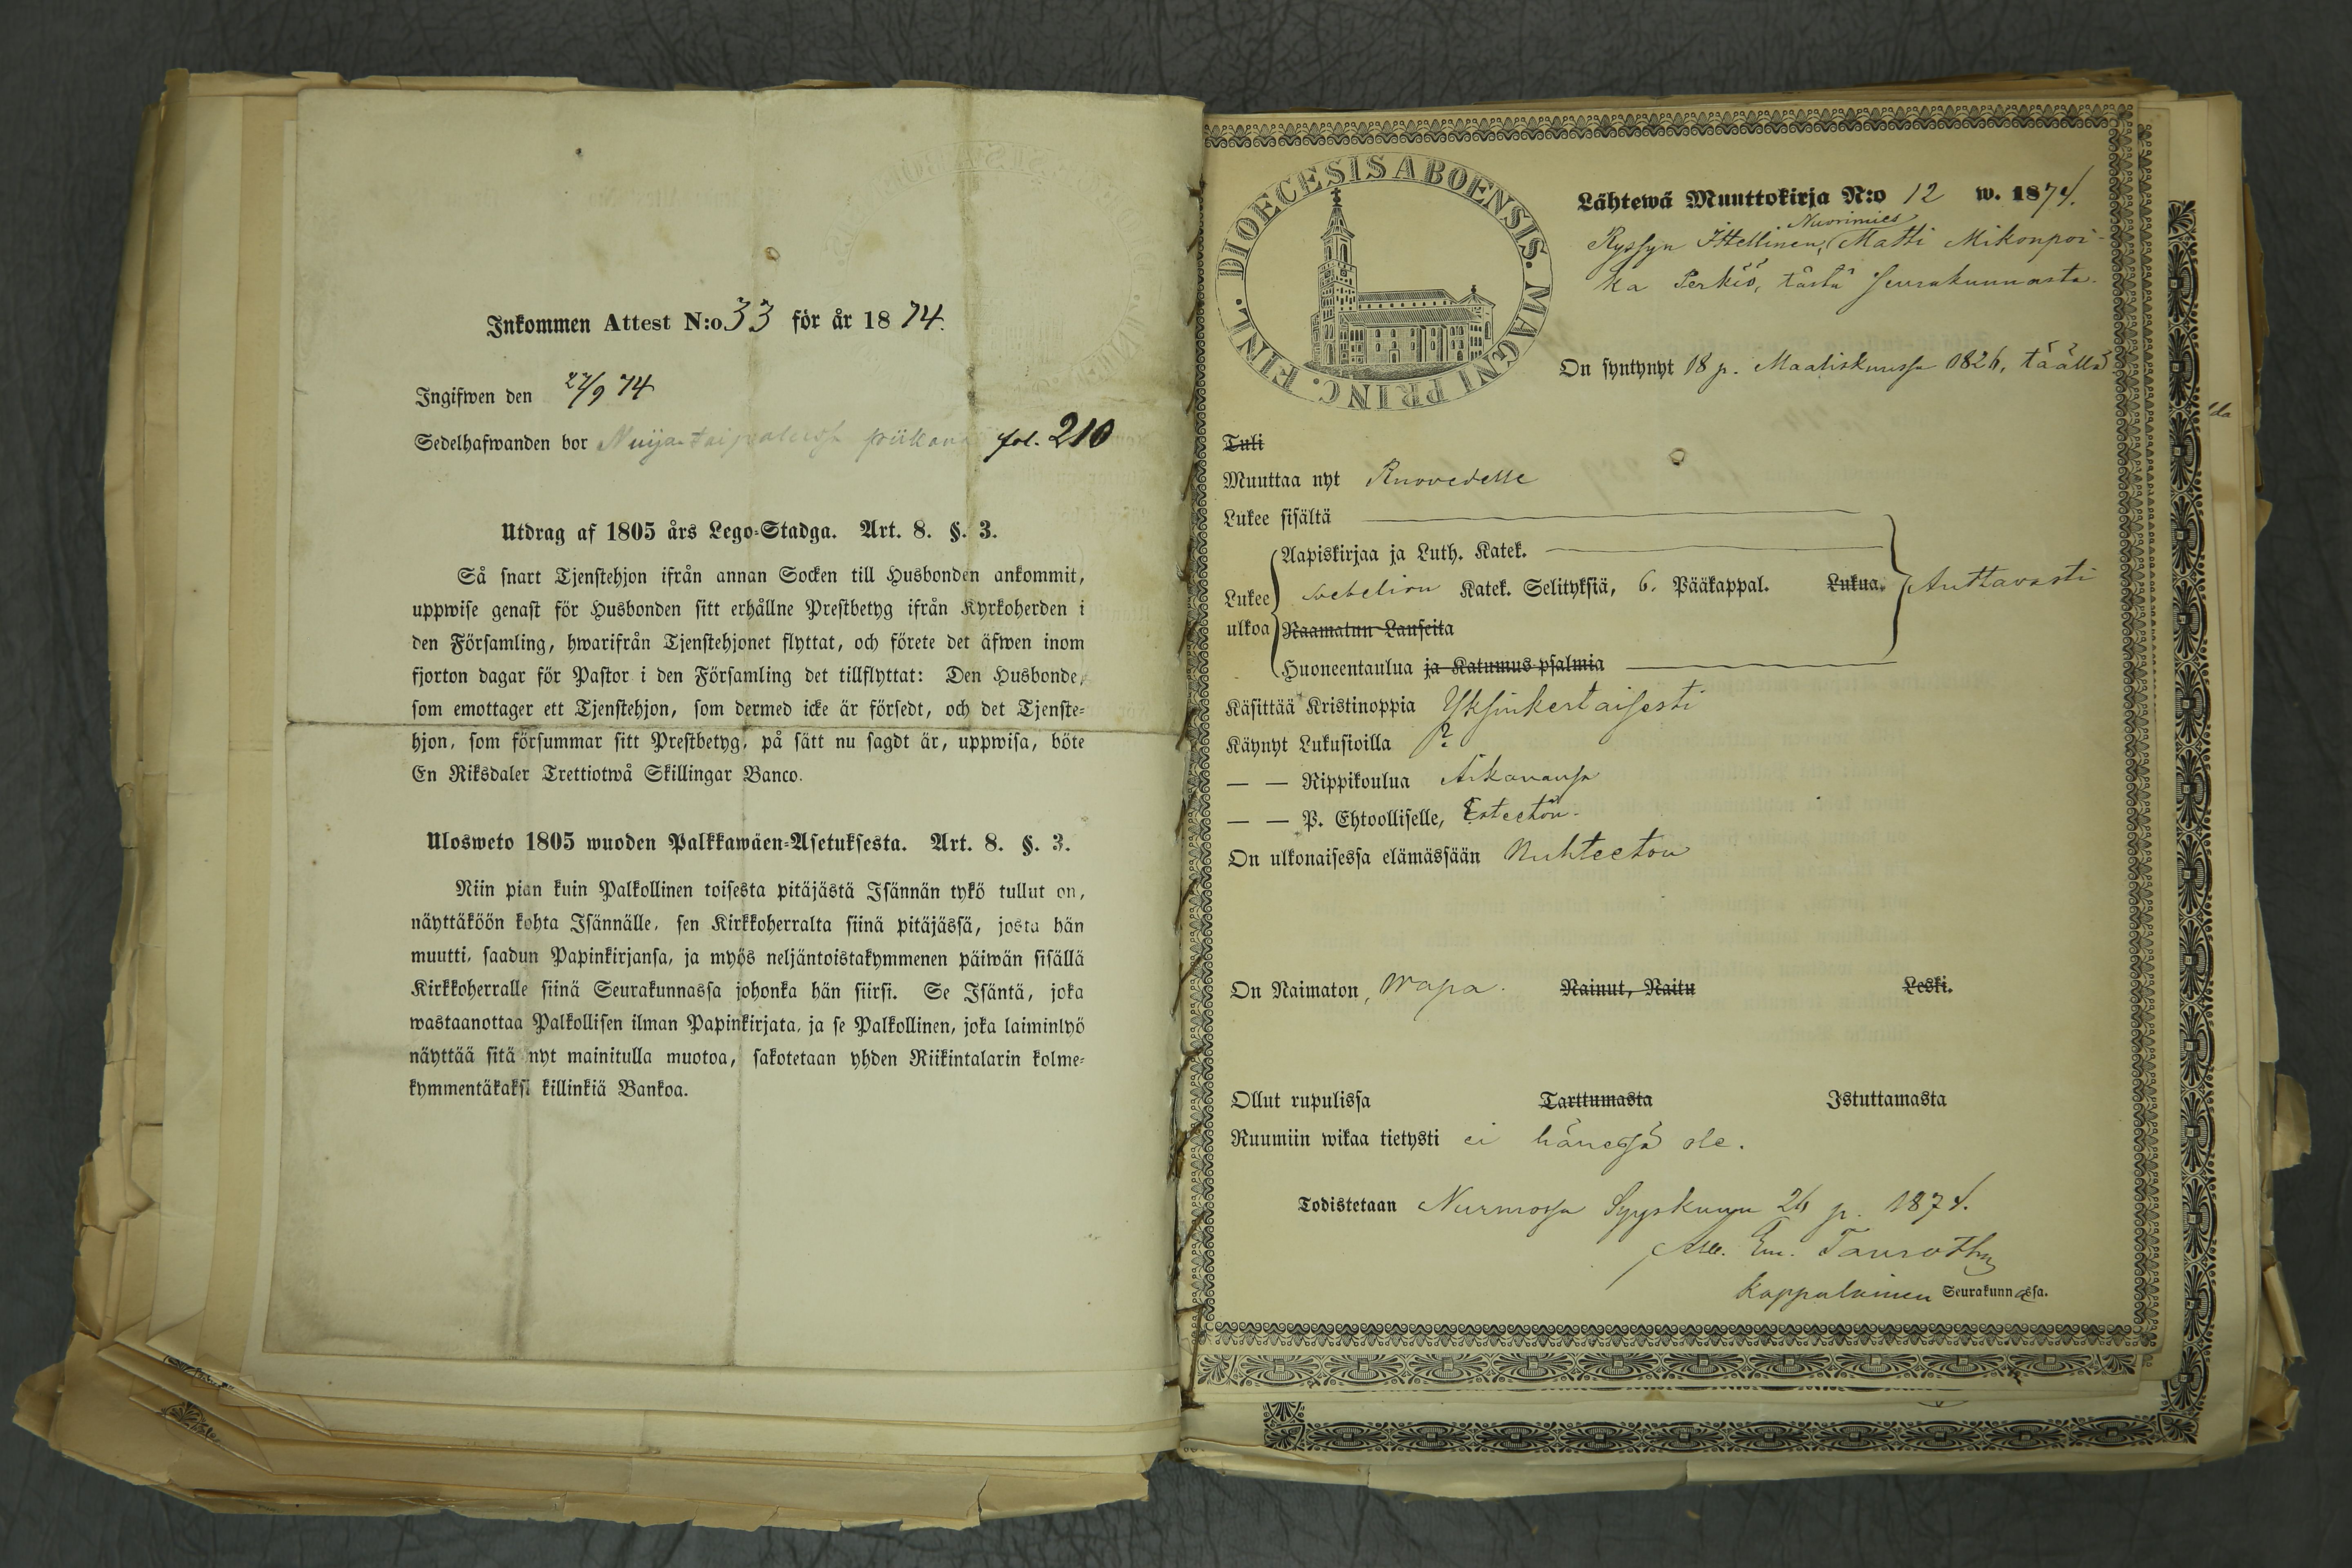 Inkommen Attest N:o 33 för år 1874.
Ingifwen den 27/9 74
Sedelhafwanden bor piikana fol. 210
Utdrag af 1805 års Lego-Stadga. Art. 8. §. 3.
Så snart Tjenstehjon ifrån annan Socken till Husbonden ankommit,
uppwise genast för Husbonden sitt erhållne Prestbetyg ifrån Kyrkoherden i
den Församling, hwarifrån Tjenstehjonet flyttat, och förete det äfwen inom
fjorton dagar för Pastor i den Församling det tillflyttat: Den Husbonde,
som emottager ett Tjenstehjon, som dermed icke är försedt, och det Tjenste-
hjon, som försummar sitt Prestbetyg, på sätt nu sagdt är, uppwisa, böte
En Riksdaler Trettiotwå Skillingar Banco.
Ulosweto 1805 wuoden Palkkawäen-Asetuksesta. Art. 8. §. 3.
Niin pian kuin Palkollinen toisesta pitäjästä Isännän tykö tullut on,
näyttäköön kohta Isännälle, sen Kirkkoherralta siinä pitäjässä, josta hän
muutti, saadun Papinkirjansa, ja myös neljäntoistakymmenen päiwän sisällä
Kirkkoherralle siinä Seurakunnassa johonka hän siirsi. Se Isäntä, joka
wastaanottaa Palkollisen ilman Papinkirjata, ja se Palkollinen, joka laiminlyö
näyttää sitä nyt mainitulla muotoa, sakotetaan yhden Riikintalarin kolme-
kymmentäkaksi killinkiä Bankoa.
DIOECESIS ABOENSIS. MAGNI PRINC. FINL.
Lähtewä Muuttokirja N:o 12 w. 1874.
Nuorimies
Ittellinen, Matti Mikonpoi-
ka Perkiö, tästä seurakunnasta.
On syntynyt 18 p. Maaliskuussa 1826, täällä
Tuli
Muuttaa nyt Ruovedelle
Lukee sisältä
Aapiskirjaa ja Luth. Katek.
Lukee ulkoa Katek. Selityksiä, 6. Pääkappal. Lukua. Auttavasti
Raamatun Lauseita
Huoneentaulua ja Katumus-psalmia
Käsittää Kristinoppia Yksinkertaisesti
Käynyt Lukusioilla ?
— — Rippikoulua Aikanansa
— — P. Ehtoolliselle, Esteetön.
On ulkonaisessa elämässään Nuhteeton
On Naimaton, wapa. Nainut, Naitu Leski.
Ollut rupulissa Tarttumasta Istuttamasta
Ruumiin wikaa tietysti ei hänessä ole.
Todistetaan Nurmossa Syyskuun 26 p. 1874.
Em.
Kappalainen Seurakunnassa.